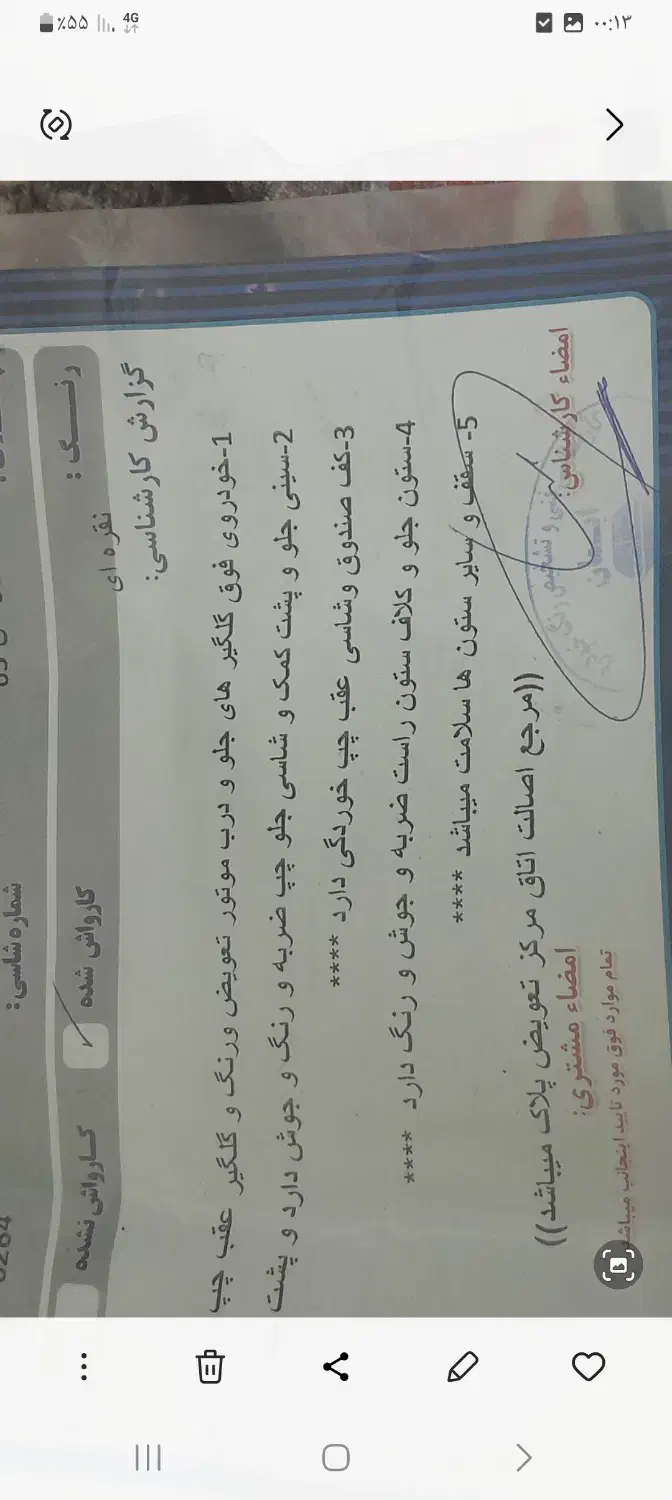 ۰۰:۱۳
4G
٪۵۵
شماره شاسی:
رنــــگ:
نقره ای
کارواش شده
کــارواش نشده
گزارش کارشناسی:
1-خودروی فوق گلگیر های جلو و درب موتور تعویض ورنگ و گلگیر عقب چپ
2-سینی جلو و پشت کمک و شاسی جلو چپ ضربه و رنگ و جوش دارد و پشت
3-کف صندوق وشاسی عقب چپ خوردگی دارد ****
4-ستون جلو و کلاف ستون راست ضربه و جوش و رنگ دارد ****
5- سقف و سایر ستون ها سلامت میباشد ****
((مرجع اصالت اتاق مرکز تعویض پلاک میباشد))
امضاء کارشناس:
امضاء مشتری:
تمام موارد فوق مورد تایید اینجانب میباشد